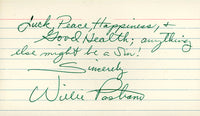 Luck, Peace, Happiness, &
Good Health; anything
else might be a Sin!
Sincerely
Willie Pastrano